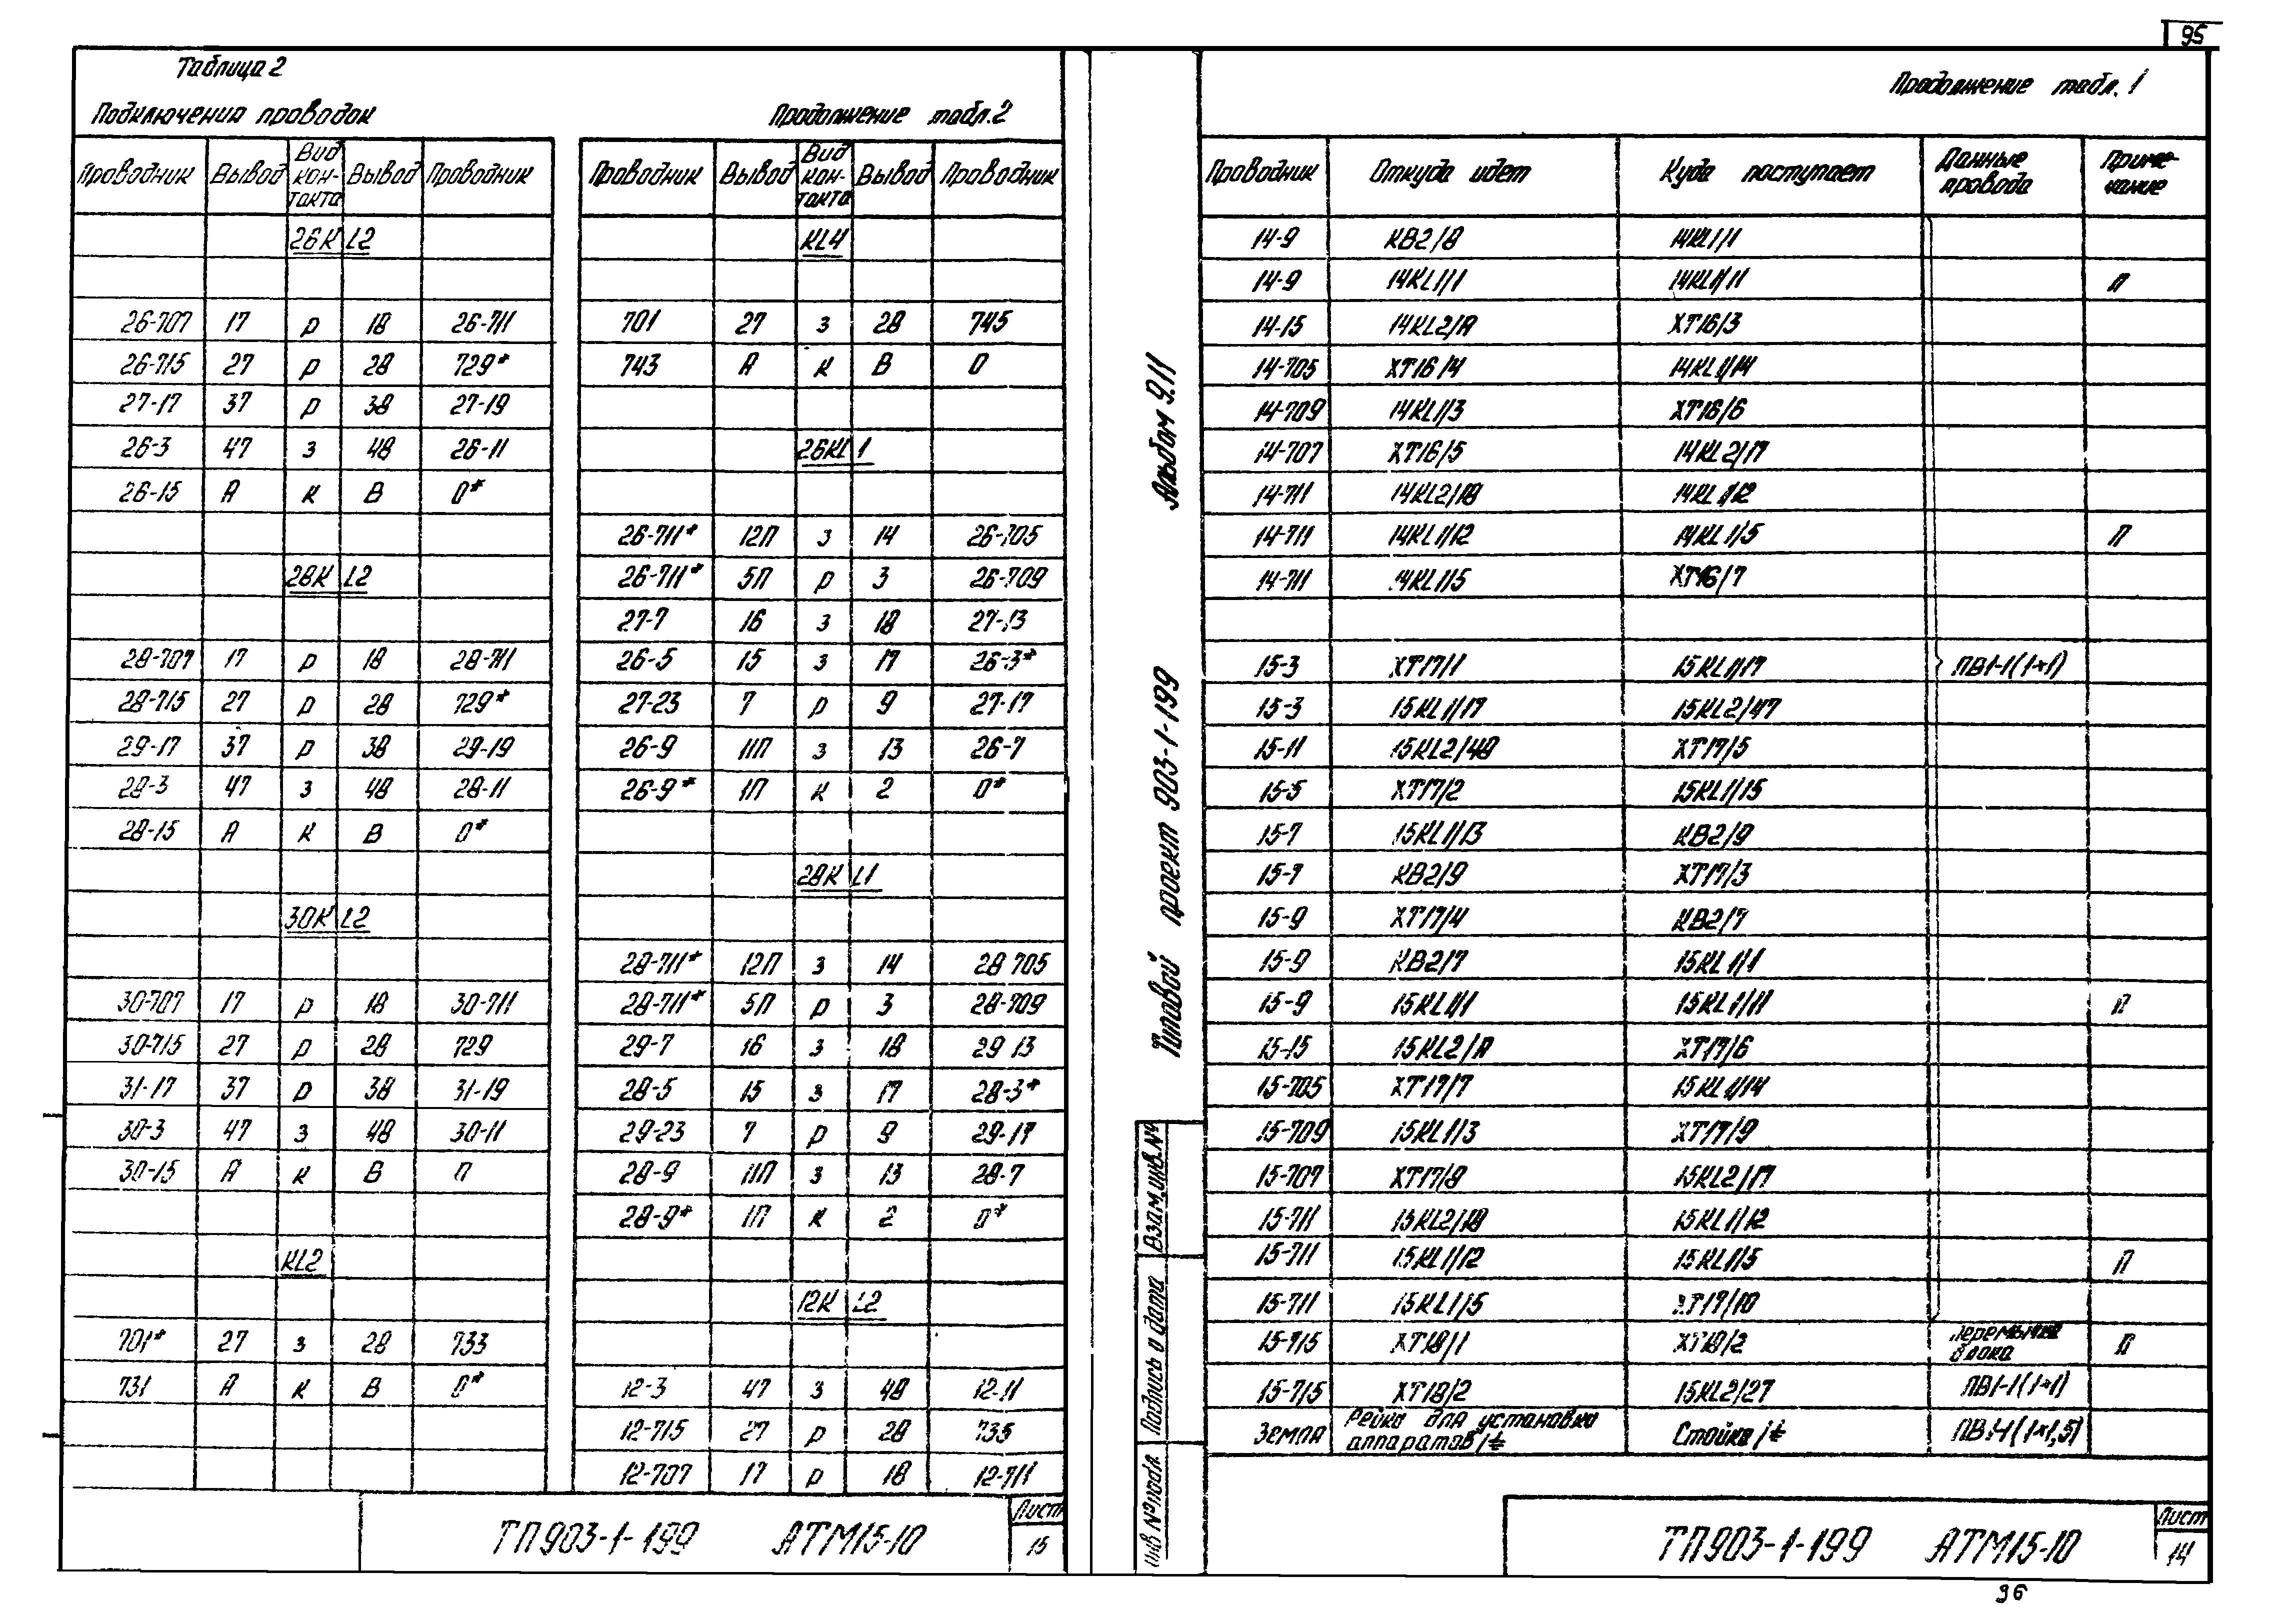 95
Таблица 2
Подключения проводок
Проводник Вывод Вид кон-такта Вывод Проводник
26KL2
26-707 17 р 18 26-711
26-715 27 р 28 729*
27-17 37 р 38 27-19
26-3 47 з 48 26-11
26-15 А к В 0*
28KL2
28-707 17 р 18 28-711
28-715 27 р 28 729*
29-17 37 р 38 29-19
28-3 47 з 48 28-11
28-15 А к В 0*
30KL2
30-707 17 р 18 30-711
30-715 27 р 28 729
31-17 37 р 38 31-19
30-3 47 з 48 30-11
30-15 А к В
KL2
701* 27 з 28 733
731 А к В 0*
Продолжение табл.2
Проводник Вывод Вид кон-такта Вывод Проводник
KL4
701 27 з 28 745
743 А к В 0
26KL1
26-711* 12П з 14 26-705
26-711* 5П р 3 26-709
27-7 16 з 18 27-13
26-5 15 з 17 26-3*
27-23 7 р 9 27-17
26-9 11П з 13 26-7
26-9* 1П к 2 0*
28KL1
28-711* 12П з 14 28 705
28-711* 5П р 3 28-709
29-7 16 з 18 29 13
28-5 15 з 17 28-3*
29-23 7 р 9 29-17
28-9 11П з 13 28-7
28-9* 1П к 2 0*
12KL2
12-3 47 з 48 12-11
12-715 27 р 28 735
12-707 17 р 18 12-711
ТП903-1-199 АТМ15-10
Лист
15
Альбом 9.11
Типовой проект 903-1-199
Взам.инв.№
Подпись и дата
Инв № подл.
Продолжение табл. 1
Проводник Откуда идет Куда поступает Данные провода Приме-чание
14-9 КВ2/8 14KL1/1
14-9 14KL1/1 14KL1/11 П
14-15 14KL2/А ХТ16/3
14-705 ХТ16/4 14KL1/14
14-709 14KL1/3 ХТ16/6
14-707 ХТ16/5 14KL2/17
14-711 14KL2/18 14KL1/12
14-711 14KL1/12 14KL1/5 П
14-711 14KL1/5 ХТ16/7
15-3 ХТ17/1 15KL1/17 ПВ1-1(1×1)
15-3 15KL1/17 15KL2/47
15-11 15KL2/48 ХТ17/5
15-5 ХТ17/2 15KL1/15
15-7 15KL1/13 КВ2/9
15-7 КВ2/9 ХТ17/3
15-9 ХТ17/4 КВ2/7
15-9 КВ2/7 15KL1/1
15-9 15KL1/1 15KL1/11 П
15-15 15KL2/А ХТ17/6
15-705 ХТ17/7 15KL1/14
15-709 15KL1/3 ХТ17/9
15-707 ХТ17/8 15KL2/17
15-711 15KL2/18 15KL1/12
15-711 15KL1/12 15KL1/5 П
15-711 15KL1/5 ХТ17/10
15-715 ХТ18/1 ХТ18/2 Перемычка блока П
15-715 ХТ18/2 15KL2/27 ПВ1-1(1×1)
Земля Рейка для установки аппаратов/⏚ Стойка/⏚ ПВ1-1(1×1,5)
ТП903-1-199 АТМ15-10
Лист
14
96